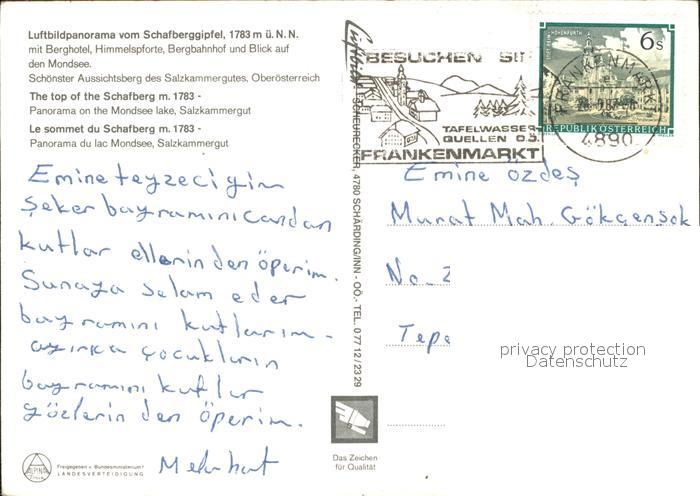 Luftbildpanorama vom Schafberggipfel, 1783 m ü. N. N.
mit Berghotel, Himmelspforte, Bergbahnhof und Blick auf
den Mondsee.
Schönster Aussichtsberg des Salzkammergutes, Oberösterreich
The top of the Schafberg m. 1783 -
Panorama on the Mondsee lake, Salzkammergut
Le sommet du Schafberg m. 1783 -
Panorama du lac Mondsee, Salzkammergut
Emine teyzeciyim
Şeker bayramını candan
kutlar ellerinden öperim.
Sunaya selam eder
bayramını kutlarım -
ayırka çocukların
bayramını kutlar
gözlerinden öperim.
Melahat
ALPINA
Freigegeben v. Bundesministerium f.
LANDESVERTEIDIGUNG
SCHEURECKER, 4780 SCHÄRDING/INN - OÖ. - TEL. 0 77 12 / 23 29
Das Zeichen
für Qualität
BESUCHEN SIE
TAFELWASSER
QUELLEN O.Ö.
FRANKENMARKT
6 S
REPUBLIK ÖSTERREICH
FRANKENMARKT
4890
Emine özdeş
Murat Mah. Gökçenşok
No. 2
Tepe
privacy protection
Datenschutz